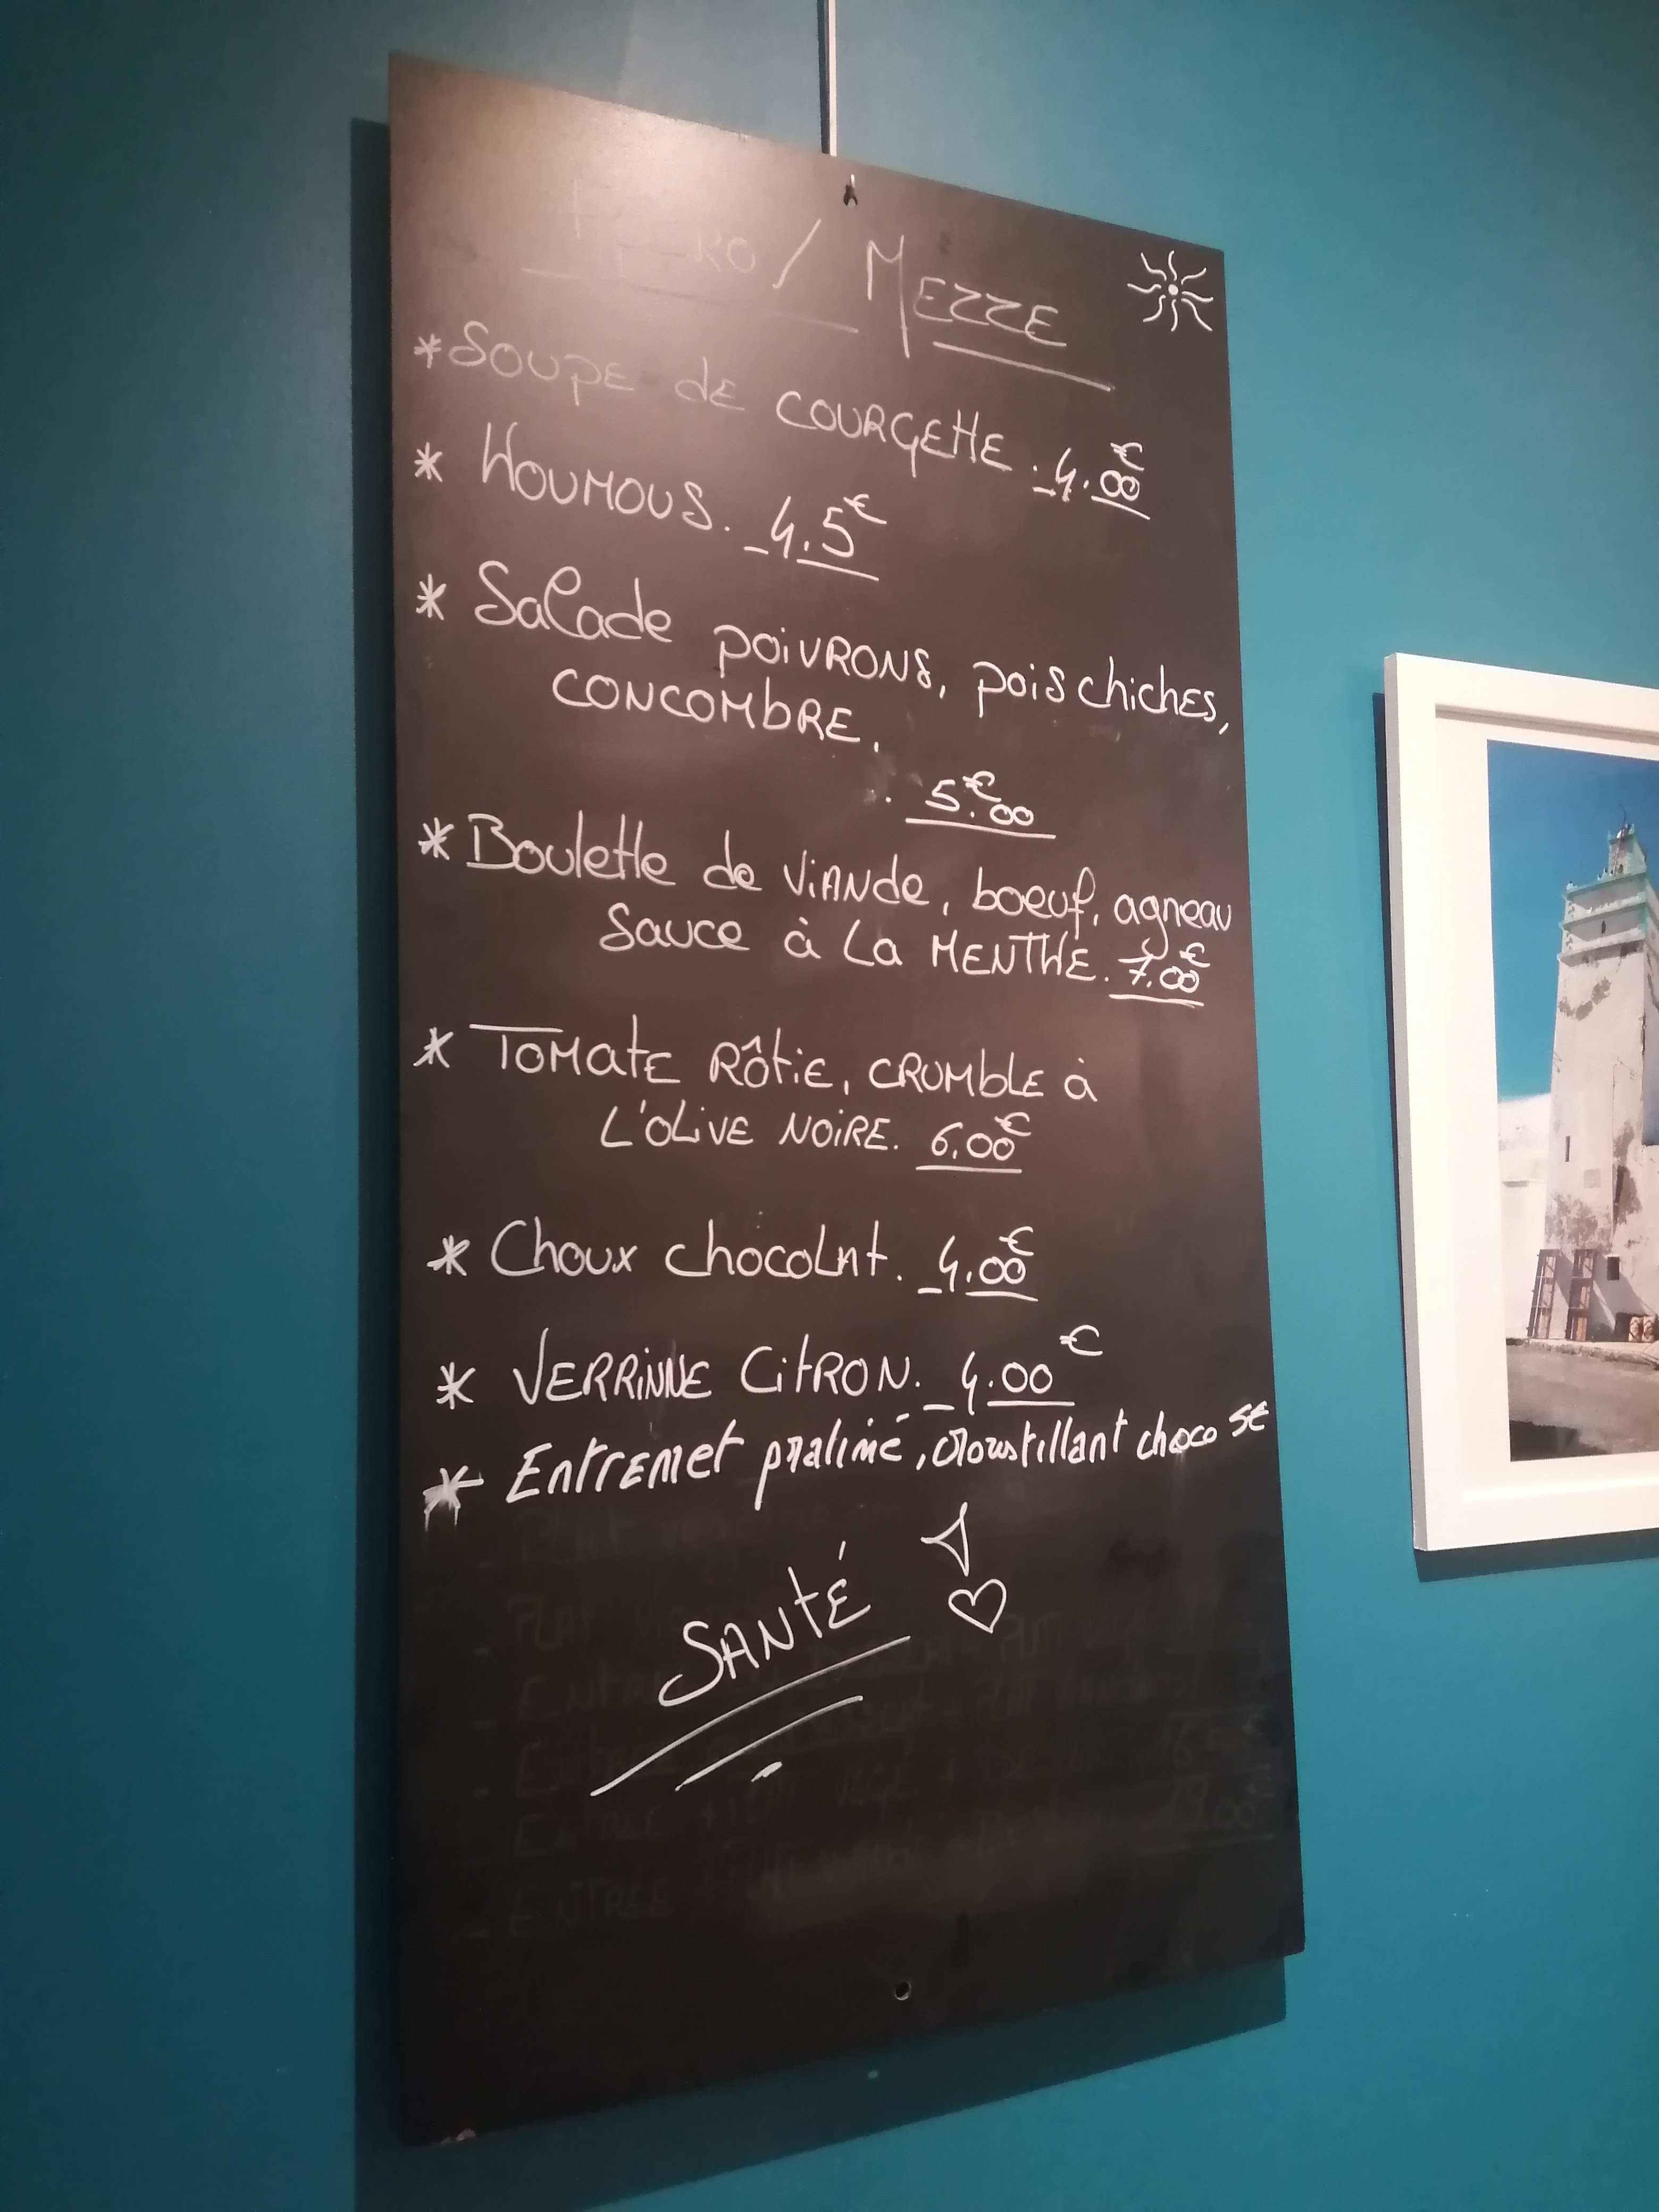 / MEZZE
* SOUPE dE COURGEttE. 4.00€
* HOUMOUS. 4.5€
* Salade POiVRONS, pois chiches,
CONCOMbRE.
. 5.€00
* Boulette de ViANde, boeuf, agneau
Sauce à La MENTHE. 7.00€
* TOMatE RÔtiE, CRUMbLE à
L'OLiVE NOiRE. 6.00€
* Choux chocoLAt. 4.00€
* VERRiNNE CitRON. 4.00€
* Entremet praliné, croustillant choco 5€
SANtÉ